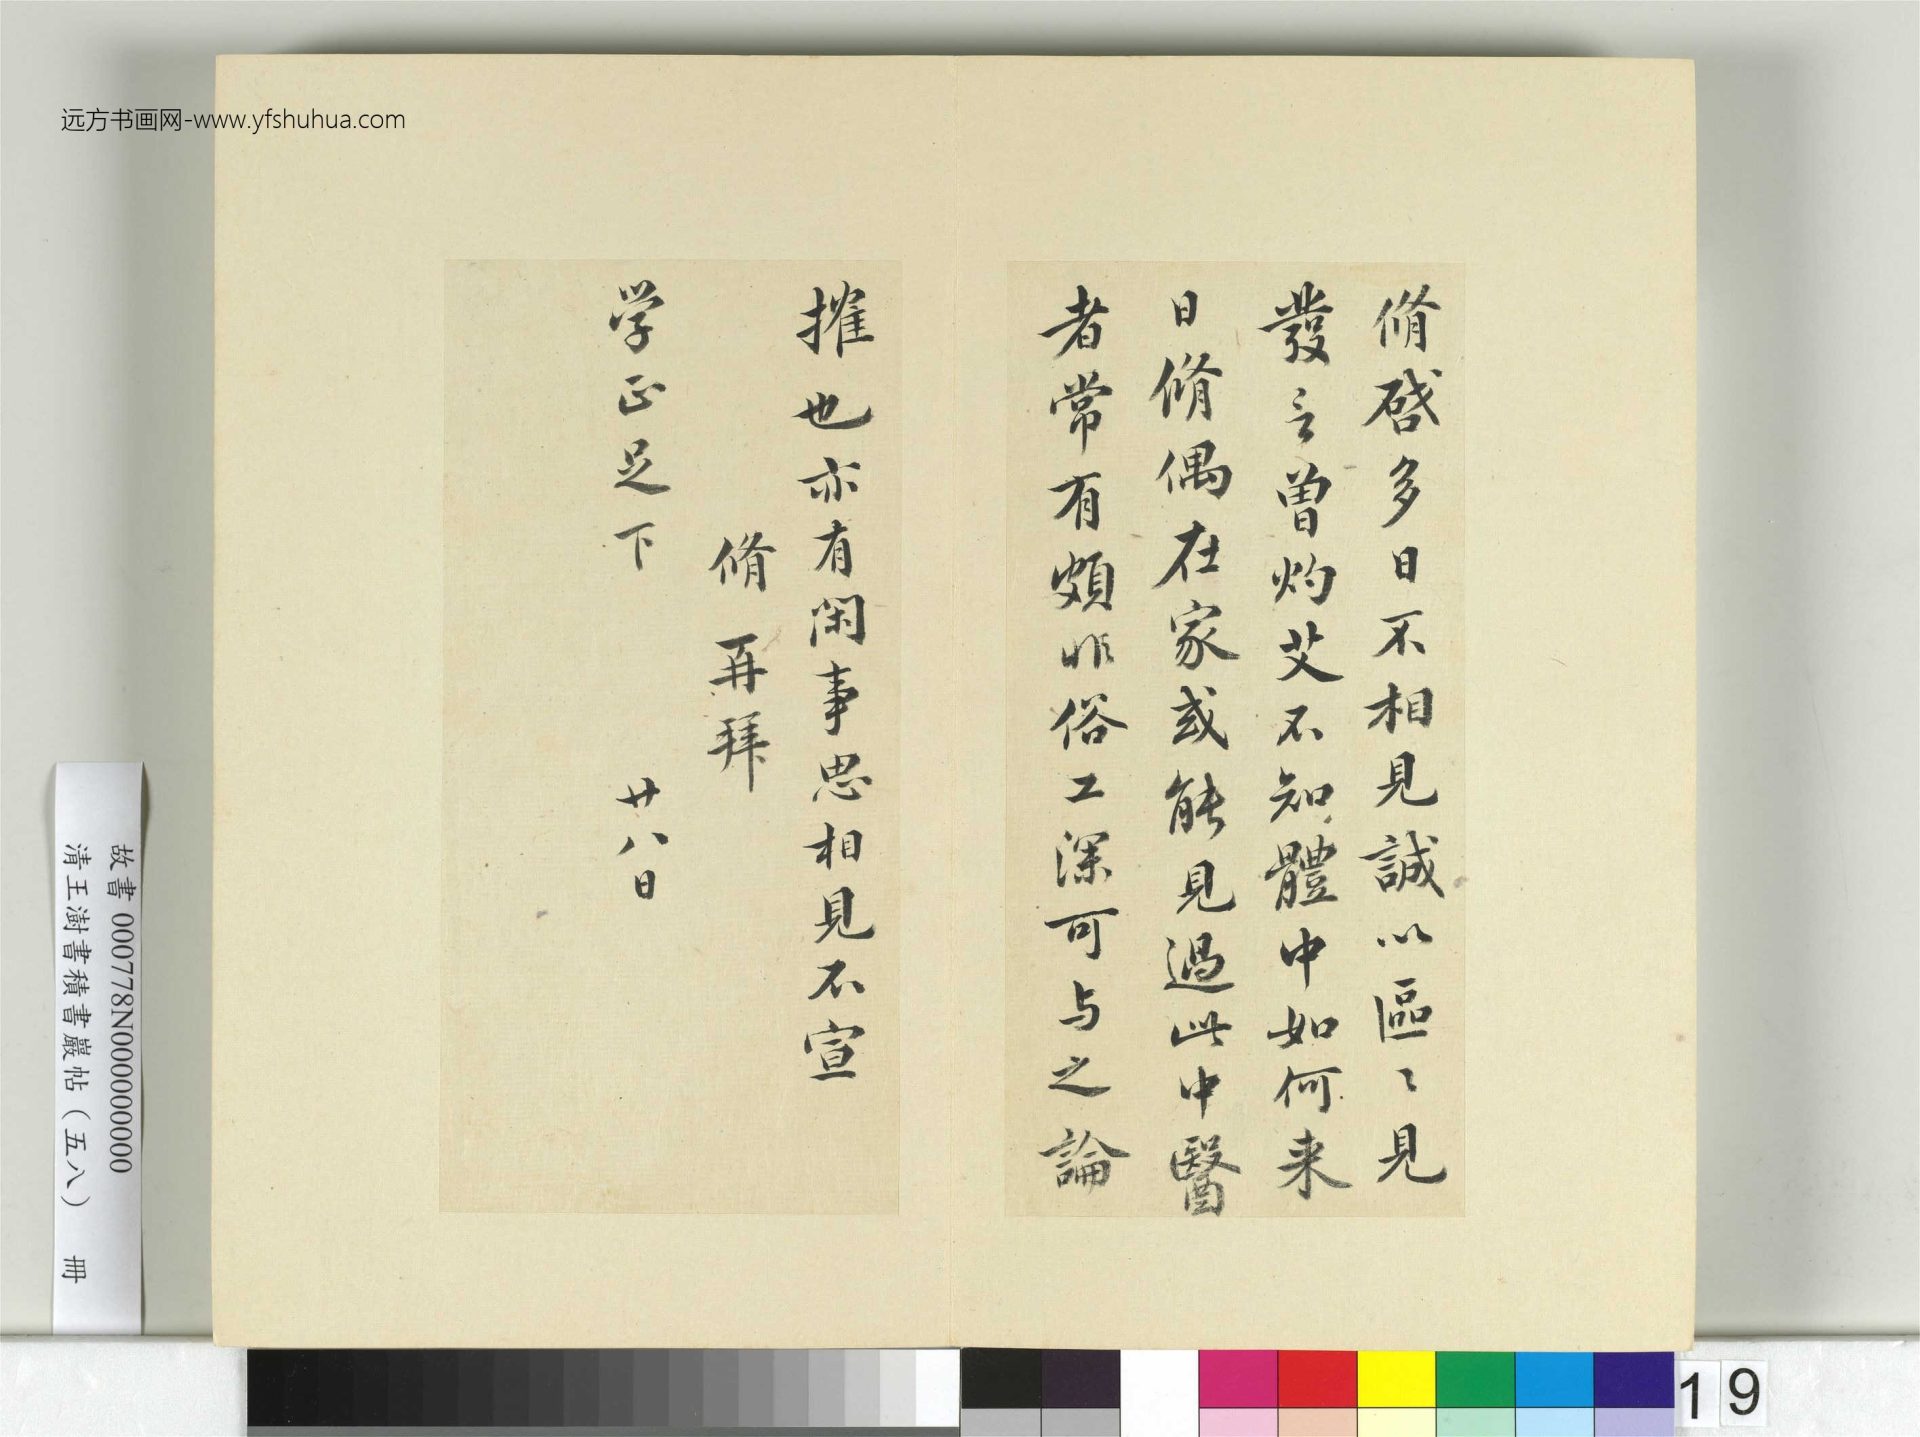 远方书画网-www.yfshuhua.com
脩啓多日不相見誠以區〻見
發言曾灼艾不知體中如何来
日脩偶在家或能見過此中醫
者常有頗非俗工深可与之論
搉也亦有閑事思相見不宣
脩再拜
学正足下 廿八日
故書 000778N000000000
清王澍書積書巖帖（五八） 冊
19